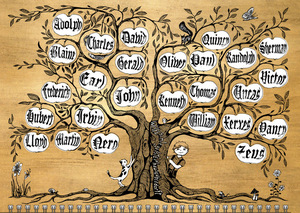 Adolph
Charles
David
Blaine
Gerald
Earl
Frederick
John
Hubert
Irvin
Lloyd
Martin
Nero
Quincy
Oliver
Paul
Randolph
Sherman
Victor
Kenneth
Thomas
William
Xerxes
Yancy
Zeus